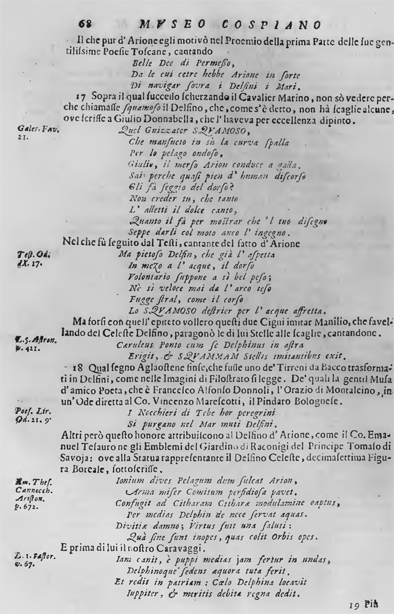 68 MVSEO COSPIANO
Il che pur d'Arione egli motivò nel Proemio della prima Parte delle sue gen-
tilissime Poesie Toscane, cantando
Belle Dee di Permesso,
Da le cui cetre hebbe Arione in sorte
Di navigar sovra i Delfini i Mari.
17 Sopra il qual successo scherzando il Cavalier Marino, non sò vedere per-
che chiamasse squamoso il Delfino, che, come s'è detto, non hà scaglie alcune,
ove scrisse a Giulio Donnabella, che l'haveva per eccellenza dipinto.
Galer. Fav.
21.
Quel Guizzator SQVAMOSO,
Che mansueto in sù la curva spalla
Per lo pelago ondoso,
Giulio, il merso Arion conduce a galla.
Sai perche quasi pien d' human discorso
Gli fà seggio del dorso?
Non creder tu, che tanto
L' alletti il dolce canto,
Quanto il fà per mostrar che 'l tuo disegno
Seppe darli col moto anco l' ingegno.
Nel che fù seguito dal Testi, cantante del fatto d'Arione
Test. Od.
IX. 17.
Ma pietoso Delfin, che già l' aspetta
In mezo a l' acque, il dorso
Volontario suppone a sì bel peso;
Nè sì veloce mai da l' arco teso
Fugge stral, come il corso
Lo SQVAMOSO destrier per l' acque affretta.
Ma forsi con quell'epitetto vollero questi due Cigni imitar Manilio, che favel-
lando del Celeste Delfino, paragonò le di lui Stelle alle scaglie, cantandone.
L. 5. Astron.
v. 421.
Caruleus Ponto cum se Delphinus in astra
Erigit, & SQVAMMAM Stellis imitantibus exit.
18 Qual segno Aglaostene finse, che fusse uno de' Tirreni da Bacco trasforma-
ti in Delfini, come nelle Imagini di Filostrato si legge. De' quali la gentil Musa
d'amico Poeta, che è Francesco Alfonso Donnoli, l'Orazio di Montalcino, in
un'Ode diretta al Co. Vincenzo Marescotti, il Pindaro Bolognese.
Poes. Lir.
Od. 21. 9.
I Nocchieri di Tebe hor peregrini
Si purgano nel Mar muti Delfini.
Altri però questo honore attribuiscono al Delfino d'Arione, come il Co. Ema-
nuel Tesauro ne gli Emblemi del Giardino di Raconigi del Principe Tomaso di
Savoja: ove alla Statua rappresentante il Delfino Celeste, decimasettima Figu-
ra Boreale, sottoscrisse.
Thes.
Cannocch.
Ariston.
p. 672.
Ionium dives Pelagum dum sulcat Arion,
Arma miser Comitum perfidiosa pavet.
Confugit ad Citharam Citharæ modulamine captus,
Per medias Delphin te nece servat aquas.
Divitiæ damno; Virtus fuit una saluti:
Quâ sine sunt inopes, quas colit Orbis opes.
E prima di lui il nostro Caravaggi.
L. 1. Fastor.
v. 67.
Iam canit, è puppi medias jam fertur in undas,
Delphinoque sedens aquora tuta ferit.
Et redit in patriam: Cælo Delphina locavit
Iuppiter, & meritis debita regna dedit.
19 Più